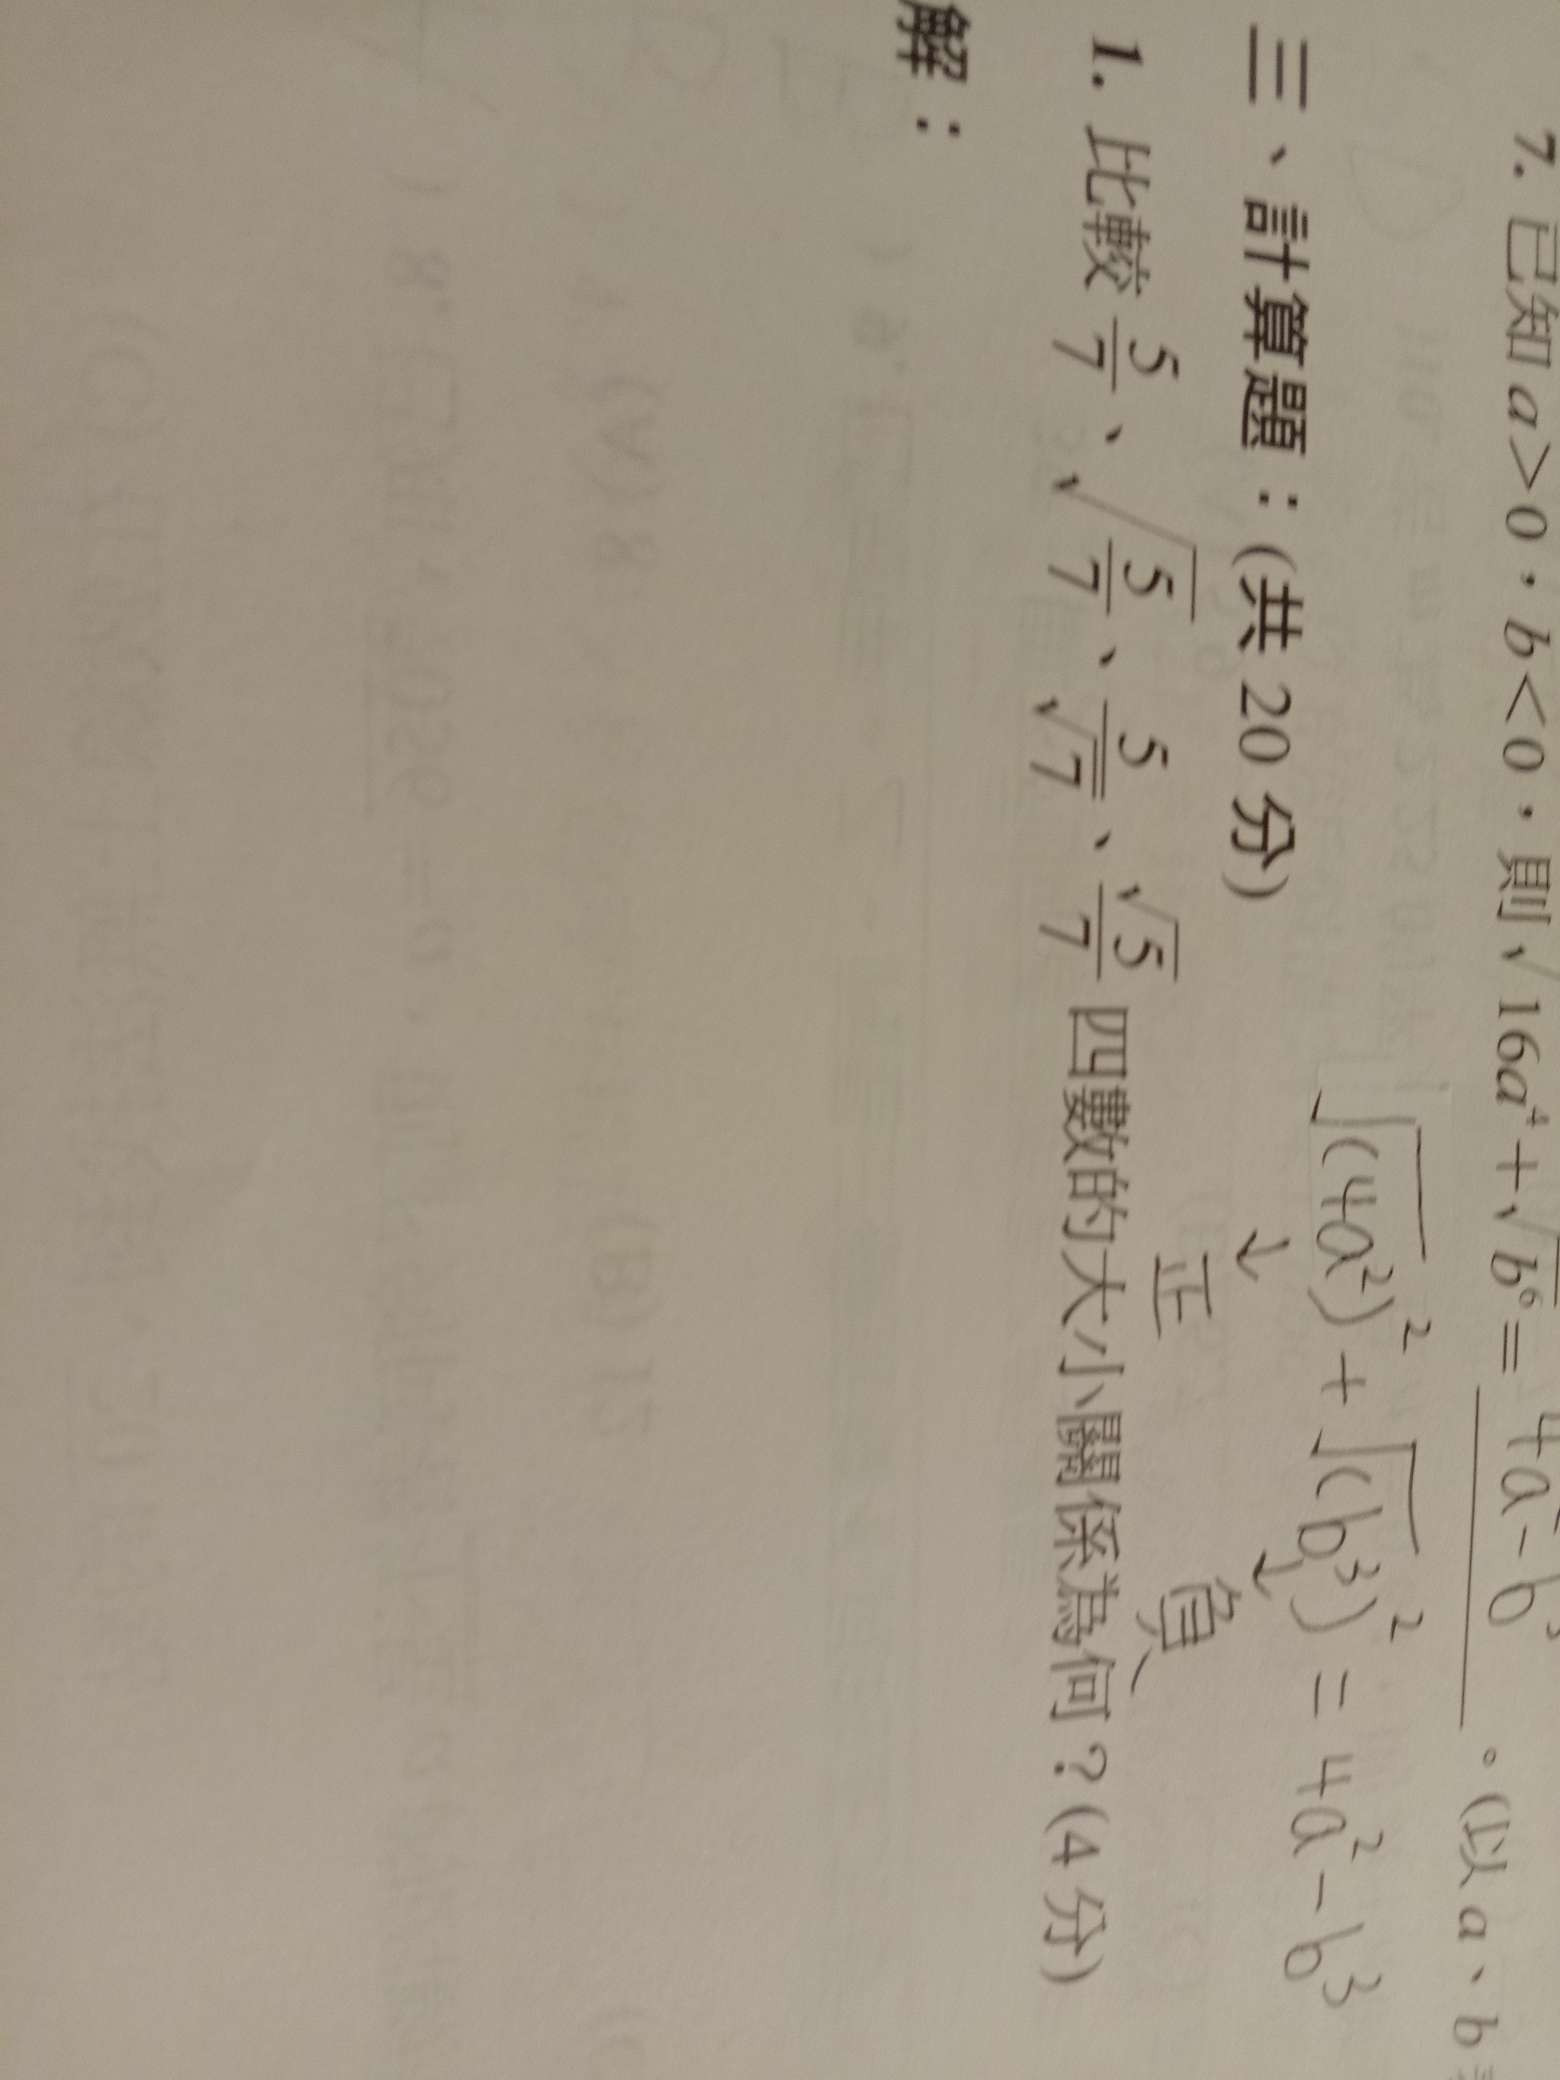 7. 已知 a>0，b<0，則√16a⁴+√b⁶= 4a²-b³ 。(以 a、b
√(4a²)² + √(b³)² = 4a²-b³
↓正 ↓負
三、計算題：(共 20 分)
1. 比較 5/7、√(5/7)、5/√7、√5/7 四數的大小關係為何？(4 分)
解：